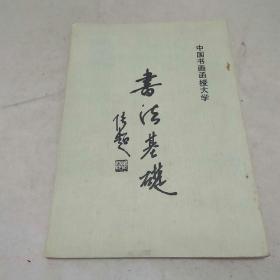 中国书画函授大学
書法基礎